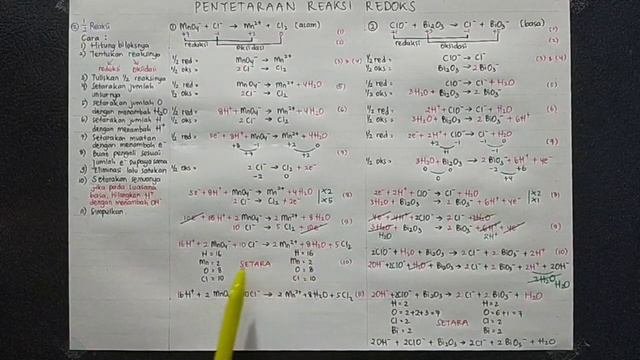 PENYETARAAN REAKSI REDOKS
½ Reaksi
Cara :
1) Hitung biloksnya
2) Tentukan reaksinya
reduksi oksidasi
3) Tuliskan ½ reaksinya
4) Setarakan jumlah
unsurnya
5) Setarakan jumlah O
dengan menambah H₂O
6) Setarakan jumlah H
dengan menambah H⁺
7) Setarakan muatan
dengan menambah e⁻
8) Buat pengali sesuai
jumlah e⁻ supaya sama
9) Eliminasi lalu satukan
10) Setarakan semuanya
jika pada suasana
basa, hilangkan H⁺
dengan menambah OH⁻
11) Simpulkan
① MnO₄⁻ + Cl⁻ → Mn²⁺ + Cl₂ (asam)
+7 -1 +2 0 (1)
reduksi oksidasi (2)
½ red = MnO₄⁻ → Mn²⁺
½ oks = 2 Cl⁻ → Cl₂ (3) & (4)
½ red = MnO₄⁻ → Mn²⁺ + 4H₂O
½ oks = 2 Cl⁻ → Cl₂ (5)
½ red = 8H⁺ + MnO₄⁻ → Mn²⁺ + 4H₂O (6)
½ oks = 2 Cl⁻ → Cl₂
½ red = 5e⁻ + 8H⁺ + MnO₄⁻ → Mn²⁺ + 4H₂O
(7)
½ oks = 2 Cl⁻ → Cl₂ + 2e⁻
-2 0
5e⁻ + 8H⁺ + MnO₄⁻ → Mn²⁺ + 4H₂O | x2 (8)
2 Cl⁻ → Cl₂ + 2e⁻ | x5
10e⁻ + 16H⁺ + 2 MnO₄⁻ → 2 Mn²⁺ + 8H₂O (9)
10 Cl⁻ → 5 Cl₂ + 10e⁻
16H⁺ + 2 MnO₄⁻ + 10 Cl⁻ → 2 Mn²⁺ + 8H₂O + 5 Cl₂
H = 16 H = 16
Mn = 2 SETARA Mn = 2 (10)
O = 8 O = 8
Cl = 10 Cl = 10
16H⁺ + 2 MnO₄⁻ 10 Cl⁻ → 2 Mn²⁺ + 8H₂O + 5 Cl₂ (11)
② ClO⁻ + Bi₂O₃ → Cl⁻ + BiO₃⁻ (basa)
+1 +3 -1 +5 (1)
reduksi oksidasi (2)
½ red = ClO⁻ → Cl⁻ (3) & (4)
½ oks = Bi₂O₃ → 2 BiO₃⁻
½ red = ClO⁻ → Cl⁻ + H₂O (5)
½ oks = 3H₂O + Bi₂O₃ → 2 BiO₃⁻
½ red = 2H⁺ + ClO⁻ → Cl⁻ + H₂O (6)
½ oks = 3H₂O + Bi₂O₃ → 2 BiO₃⁻ + 6H⁺
½ red = 2e⁻ + 2H⁺ + ClO⁻ → Cl⁻ + H₂O
(7)
½ oks = 3H₂O + Bi₂O₃ → 2 BiO₃⁻ + 6H⁺ + 4e⁻
2e⁻ + 2H⁺ + ClO⁻ → Cl⁻ + H₂O | x2 (8)
3H₂O + Bi₂O₃ → 2 BiO₃⁻ + 6H⁺ + 4e⁻ | x1
4e⁻ + 4H⁺ + 2ClO⁻ → 2 Cl⁻ + 2H₂O (9)
3H₂O + Bi₂O₃ → 2 BiO₃⁻ + 6H⁺ + 4e⁻
H₂O 2H⁺
2ClO⁻ + H₂O + Bi₂O₃ → 2 Cl⁻ + 2 BiO₃⁻ + 2H⁺ (10)
2OH⁻ + 2ClO⁻ + H₂O + Bi₂O₃ → 2 Cl⁻ + 2 BiO₃⁻ + 2H⁺ + 2OH⁻
2H₂O H₂O
2OH⁻ + 2ClO⁻ + Bi₂O₃ → 2 Cl⁻ + 2 BiO₃⁻ + H₂O
H = 2 H = 2
O = 2 + 2 + 3 = 7 O = 6 + 1 = 7
Cl = 2 SETARA Cl = 2
Bi = 2 Bi = 2
2OH⁻ + 2ClO⁻ + Bi₂O₃ → 2 Cl⁻ + 2 BiO₃⁻ + H₂O